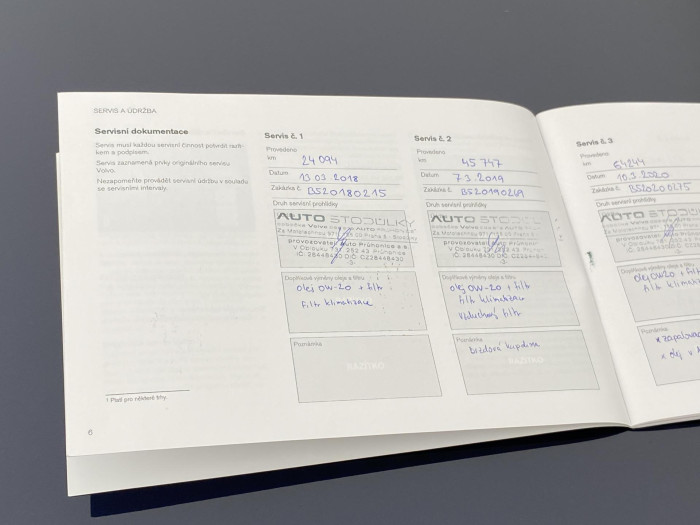 SERVIS A ÚDRŽBA
Servisní dokumentace
Servis musí každou servisní činnost potvrdit razít-
kem a podpisem.
Servis zaznamená prvky originálního servisu
Volvo.
Nezapomeňte provádět servisní údržbu v souladu
se servisními intervaly.
1 Platí pro některé trhy.
6
Servis č. 1
Provedeno
km 24 094
Datum 13.03.2018
Zakázka č. BS20180215
Druh servisní prohlídky
AUTO STODŮLKY
provozovatel Auto Průhonice a.s.
V Oblouku 252 43 Průhonice
IČ: 28448430 DIČ: CZ28448430
-3-
Doplňkové výměny oleje a filtru
olej 0W-20 + filtr
filtr klimatizace
Poznámka
RAZÍTKO
Servis č. 2
Provedeno
km 45 747
Datum 7.3.2019
Zakázka č. BS20190269
Druh servisní prohlídky
AUTO STODŮL
provozovatel Průhonic
V Oblouku 252 43 Průhonic
IČ: 28448430 DIČ: CZ284484
-3-
Doplňkové výměny oleje a filtru
olej 0W-20 + filtr
filtr klimatizace
vzduchový filtr
Poznámka
brzdová kapalina
RAZÍTKO
Servis č. 3
Provedeno
km 64244
Datum 10.3.2020
Zakázka č. BS20200175
Druh servisní prohlídky
AUTO STODŮ
Doplňkové výměny oleje a filtru
olej 0W20 + filt
filtr klimat
Poznámka